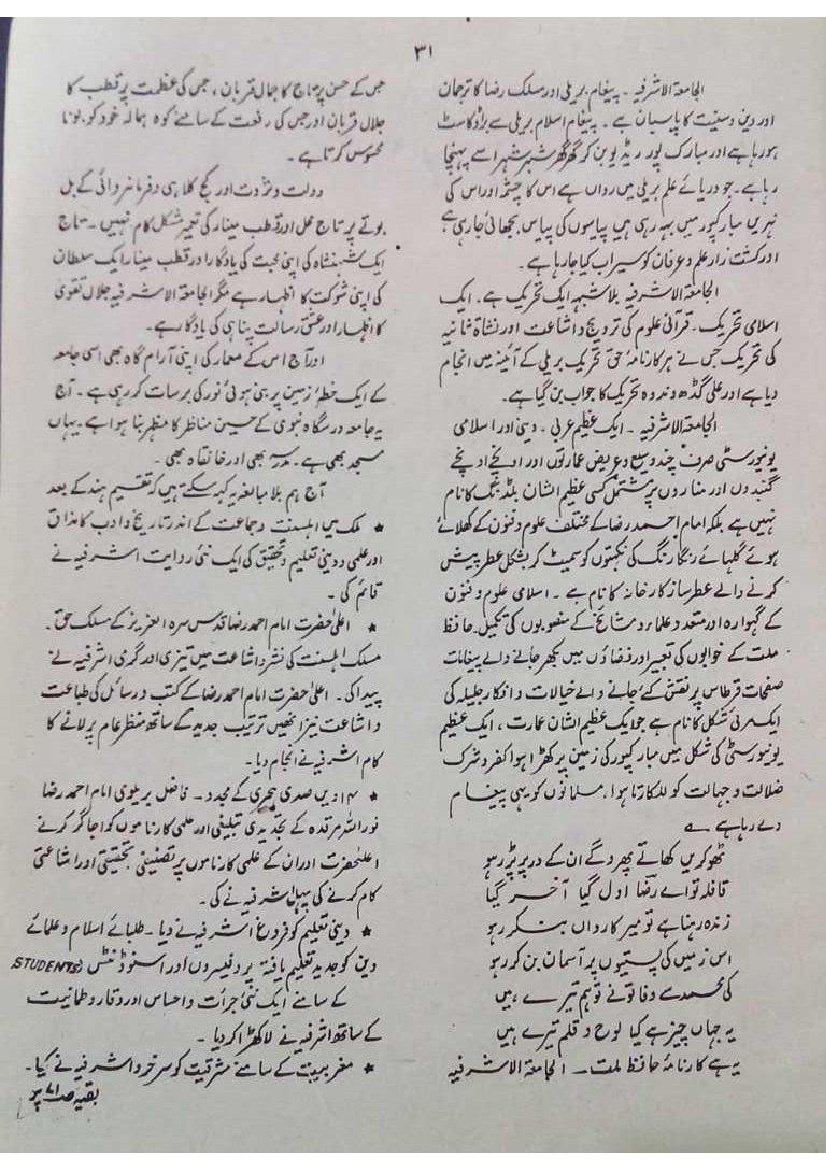 ۳۱
الجامعۃ الاشرفیہ ۔ پیغام بریلی اور مسلک رضا کا ترجمان
اور دین و سنیت کا پاسبان ہے ۔ پیغام اسلام بریلی سے براڈ کاسٹ
ہو رہا ہے اور مبارک پور ریڈیو بن کر گھر گھر شہر شہر اسے پہنچا
رہا ہے۔ جو دریائے علم بریلی میں رواں ہے اس کا چشمہ اور اس کی
نہریں مبارکپور میں بہہ رہی ہیں پیاسوں کی پیاس بجھائی جا رہی ہے
اور کشت زار علم و عرفان کو سیراب کیا جا رہا ہے ۔
الجامعۃ الاشرفیہ بلاشبہ ایک تحریک ہے ۔ ایک
اسلامی تحریک ۔ قرآنی علوم کی ترویج و اشاعت اور نشاۃ ثانیہ
کی تحریک جس نے ہر کارنامۂ حق تحریک بریلی کے آئینہ میں انجام
دیا ہے اور علی گڈھ و ندوہ تحریک کا جواب بن گیا ہے۔
الجامعۃ الاشرفیہ ۔ ایک عظیم عربی ۔ دینی اور اسلامی
یونیورسٹی صرف چند وسیع و عریض عمارتوں اور اونچے اونچے
گنبدوں اور مناروں پر مشتمل کسی عظیم الشان بلڈنگ کا نام
نہیں ہے بلکہ امام احمد رضا کے مختلف علوم و فنون کے کھلائے
ہوئے گلہائے رنگارنگ کی نکہتوں کو سمیٹ کر بشکل عطر پیش
کرنے والے عطر ساز کارخانہ کا نام ہے ۔ اسلامی علوم و فنون
کے گہوارہ اور متعدد علماء و مشائخ کے منصوبوں کی تکمیل۔ حافظ
ملت کے خوابوں کی تعبیر اور فضاؤں میں بکھر جانے والے پیغامات
صفحات قرطاس پر نقش کئے جانے والے خیالات و افکار جلیلہ کی
ایک مرئی شکل کا نام ہے جو ایک عظیم الشان عمارت ، ایک عظیم
یونیورسٹی کی شکل میں مبارکپور کی زمین پر کھڑا ہوا کفر و شرک
ضلالت و جہالت کو للکارتا ہوا، مسلمانوں کو یہی پیغام
دے رہا ہے ؎
ٹھوکریں کھاتے پھرو گے ان کے در پر پڑ رہو
قافلہ تو اے رضا اول گیا آخر گیا
زندہ رہنا ہے تو میر کارواں بنکر رہو
اس زمیں کی پستیوں پہ آسمان بن کر رہو
کی محمد سے وفا تو نے تو ہم تیرے ہیں
یہ جہاں چیز ہے کیا لوح و قلم تیرے ہیں
یہ ہے کارنامۂ حافظ ملت ۔ الجامعۃ الاشرفیہ
جس کے حسن پر تاج کا جمال قربان ، جس کی عظمت پر قطب کا
جلال قربان اور جس کی رفعت کے سامنے کوہ ہمالہ خود کو بونا
محسوس کرتا ہے ۔
دولت و ثروت اور کج کلاہی و فرمانروائی کے بل
بوتے پر تاج محل اور قطب مینار کی تعمیر مشکل کام نہیں ۔ تاج
ایک شہنشاہ کی اپنی محبت کی یادگار اور قطب مینار ایک سلطان
کی اپنی شوکت کا اظہار ہے مگر الجامعۃ الاشرفیہ جلال تقوی
کا اظہار اور عشق رسالت پناہی کی یادگار ہے۔
اور آج اس کے معمار کی اپنی آرام گاہ بھی اسی جامعہ
کے ایک خطۂ زمین پر بنی ہوئی نور کی برسات کر رہی ہے ۔ آج
یہ جامعہ درسگاہ نبوی کے حسین مناظر کا منظر بنا ہوا ہے۔ یہاں
مسجد بھی ہے ۔ مدرسہ بھی اور خانقاہ بھی ۔
آج ہم بلا مبالغہ یہ کہہ سکتے ہیں کہ تقسیم ہند کے بعد
★ ملک میں اہلسنت و جماعت کے اندر تاریخ و ادب کا مذاق
اور علمی و دینی تعلیم و تحقیق کی ایک نئی روایت اشرفیہ نے
قائم کی ۔
★ اعلیٰ حضرت امام احمد رضا قدس سرہ العزیز کے مسلک حق ۔
مسلک اہلسنت کی نشر و اشاعت میں تیزی اور گرمی اشرفیہ نے
پیدا کی ۔ اعلیٰ حضرت امام احمد رضا کے کتب و رسائل کی طباعت
و اشاعت نیز انھیں ترتیب جدید کے ساتھ منظر عام پر لانے کا
کام اشرفیہ نے انجام دیا۔
★ ۱۴ ویں صدی ہجری کے مجدد ۔ فاضل بریلوی امام احمد رضا
نور اللہ مرقدہ کے تجدیدی تبلیغی اور علمی کارناموں کو اجاگر کرنے
اعلحضرت اور ان کے علمی کارناموں پر تصنیفی تحقیقی اور اشاعتی
کام کرنے کی پہل اشرفیہ نے کی ۔
★ دینی تعلیم کو فروغ اشرفیہ نے دیا ۔ طلبائے اسلام و علمائے
دین کو جدید تعلیم یافتہ پروفیسروں اور اسٹوڈنٹس (STUDENTS)
کے سامنے ایک نئی جرأت و احساس اور وقار و طمانیت
کے ساتھ اشرفیہ نے لا کھڑا کر دیا ۔
★ مغربیت کے سامنے مشرقیت کو سرخرو اشرفیہ نے کیا ۔
بقیہ صہ ۷۱ پر